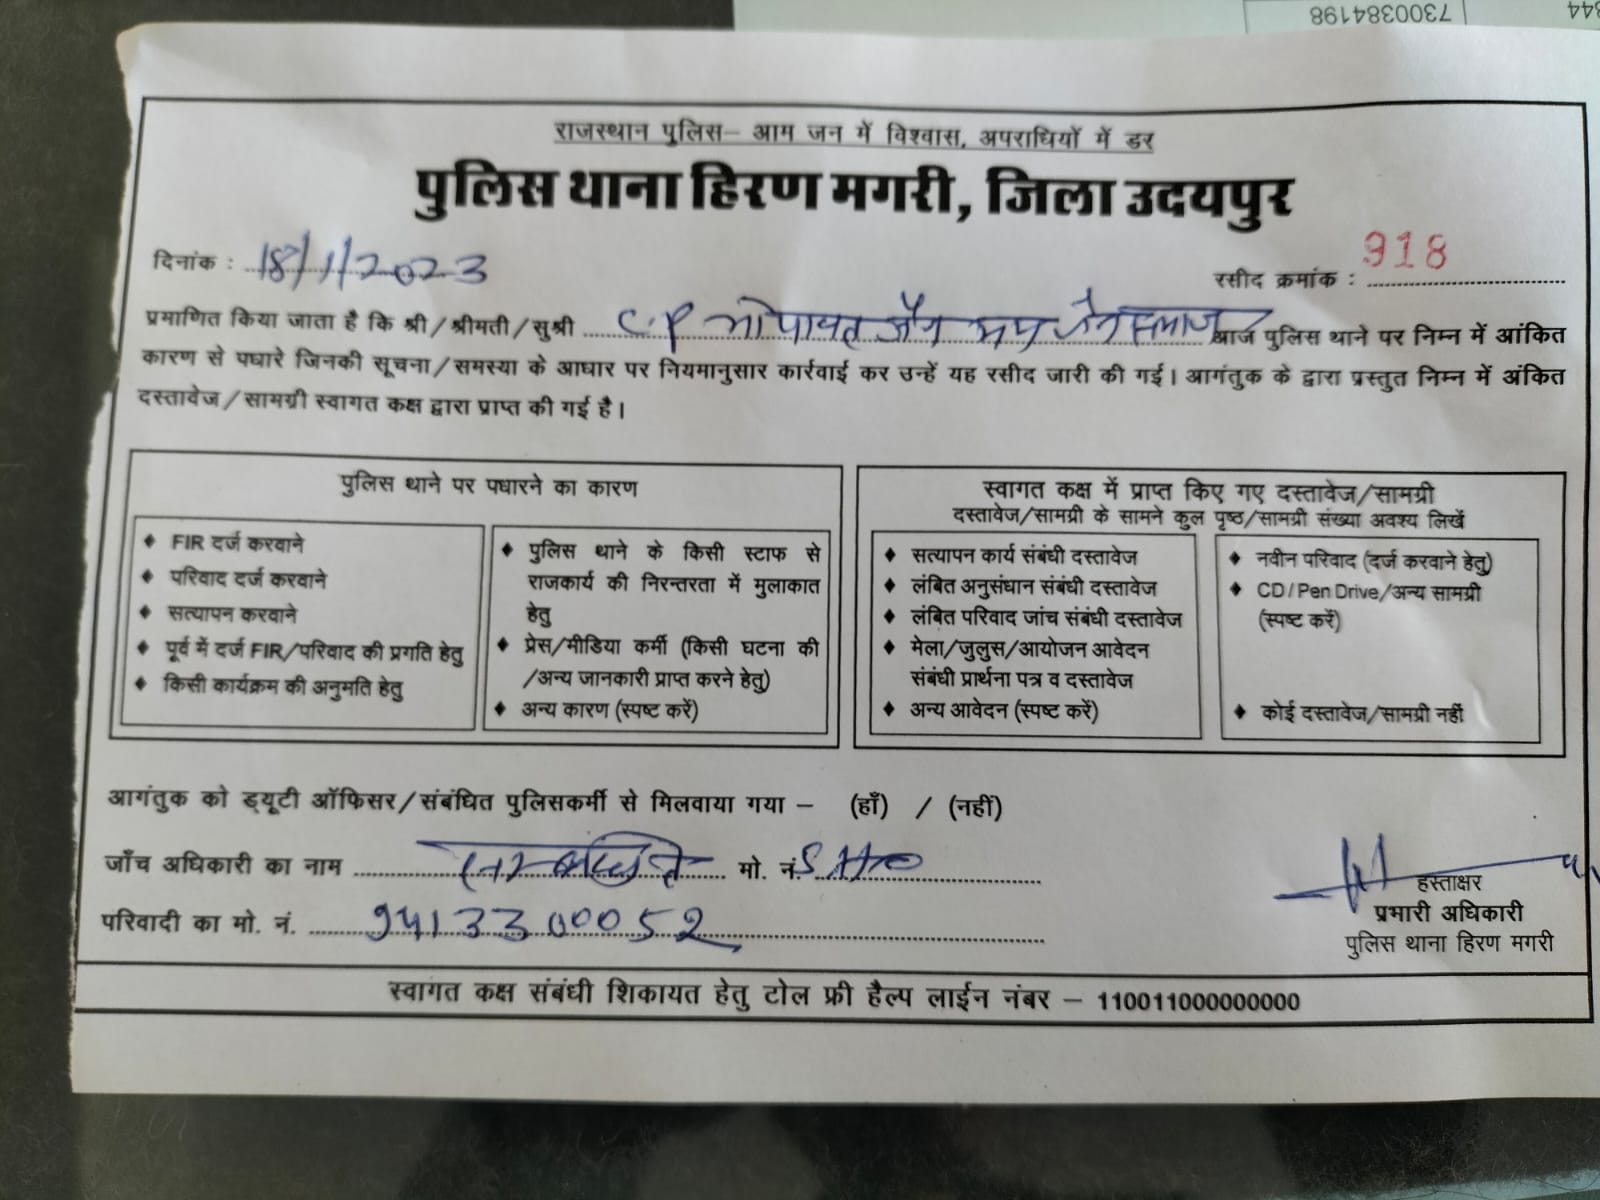 7300384198
राजस्थान पुलिस– आम जन में विश्वास, अपराधियों में डर
पुलिस थाना हिरण मगरी, जिला उदयपुर
दिनांक : 18/1/2023
रसीद क्रमांक : 918
प्रमाणित किया जाता है कि श्री/श्रीमती/सुश्री C.P जैन आज पुलिस थाने पर निम्न में आंकित
कारण से पधारे जिनकी सूचना/समस्या के आधार पर नियमानुसार कार्रवाई कर उन्हें यह रसीद जारी की गई। आगंतुक के द्वारा प्रस्तुत निम्न में अंकित
दस्तावेज/सामग्री स्वागत कक्ष द्वारा प्राप्त की गई है।
पुलिस थाने पर पधारने का कारण
♦ FIR दर्ज करवाने
♦ परिवाद दर्ज करवाने
♦ सत्यापन करवाने
♦ पूर्व में दर्ज FIR/परिवाद की प्रगति हेतु
♦ किसी कार्यक्रम की अनुमति हेतु
♦ पुलिस थाने के किसी स्टाफ से
राजकार्य की निरन्तरता में मुलाकात
हेतु
♦ प्रेस/मीडिया कर्मी (किसी घटना की
/अन्य जानकारी प्राप्त करने हेतु)
♦ अन्य कारण (स्पष्ट करें)
स्वागत कक्ष में प्राप्त किए गए दस्तावेज/सामग्री
दस्तावेज/सामग्री के सामने कुल पृष्ठ/सामग्री संख्या अवश्य लिखें
♦ सत्यापन कार्य संबंधी दस्तावेज
♦ लंबित अनुसंधान संबंधी दस्तावेज
♦ लंबित परिवाद जांच संबंधी दस्तावेज
♦ मेला/जुलुस/आयोजन आवेदन
संबंधी प्रार्थना पत्र व दस्तावेज
♦ अन्य आवेदन (स्पष्ट करें)
♦ नवीन परिवाद (दर्ज करवाने हेतु)
♦ CD/Pen Drive/अन्य सामग्री
(स्पष्ट करें)
♦ कोई दस्तावेज/सामग्री नहीं
आगंतुक को ड्यूटी ऑफिसर/संबंधित पुलिसकर्मी से मिलवाया गया – (हाँ) / (नहीं)
जाँच अधिकारी का नाम मो. नं. SHO
परिवादी का मो. नं. 9413300052
हस्ताक्षर
प्रभारी अधिकारी
पुलिस थाना हिरण मगरी
स्वागत कक्ष संबंधी शिकायत हेतु टोल फ्री हैल्प लाईन नंबर – 110011000000000